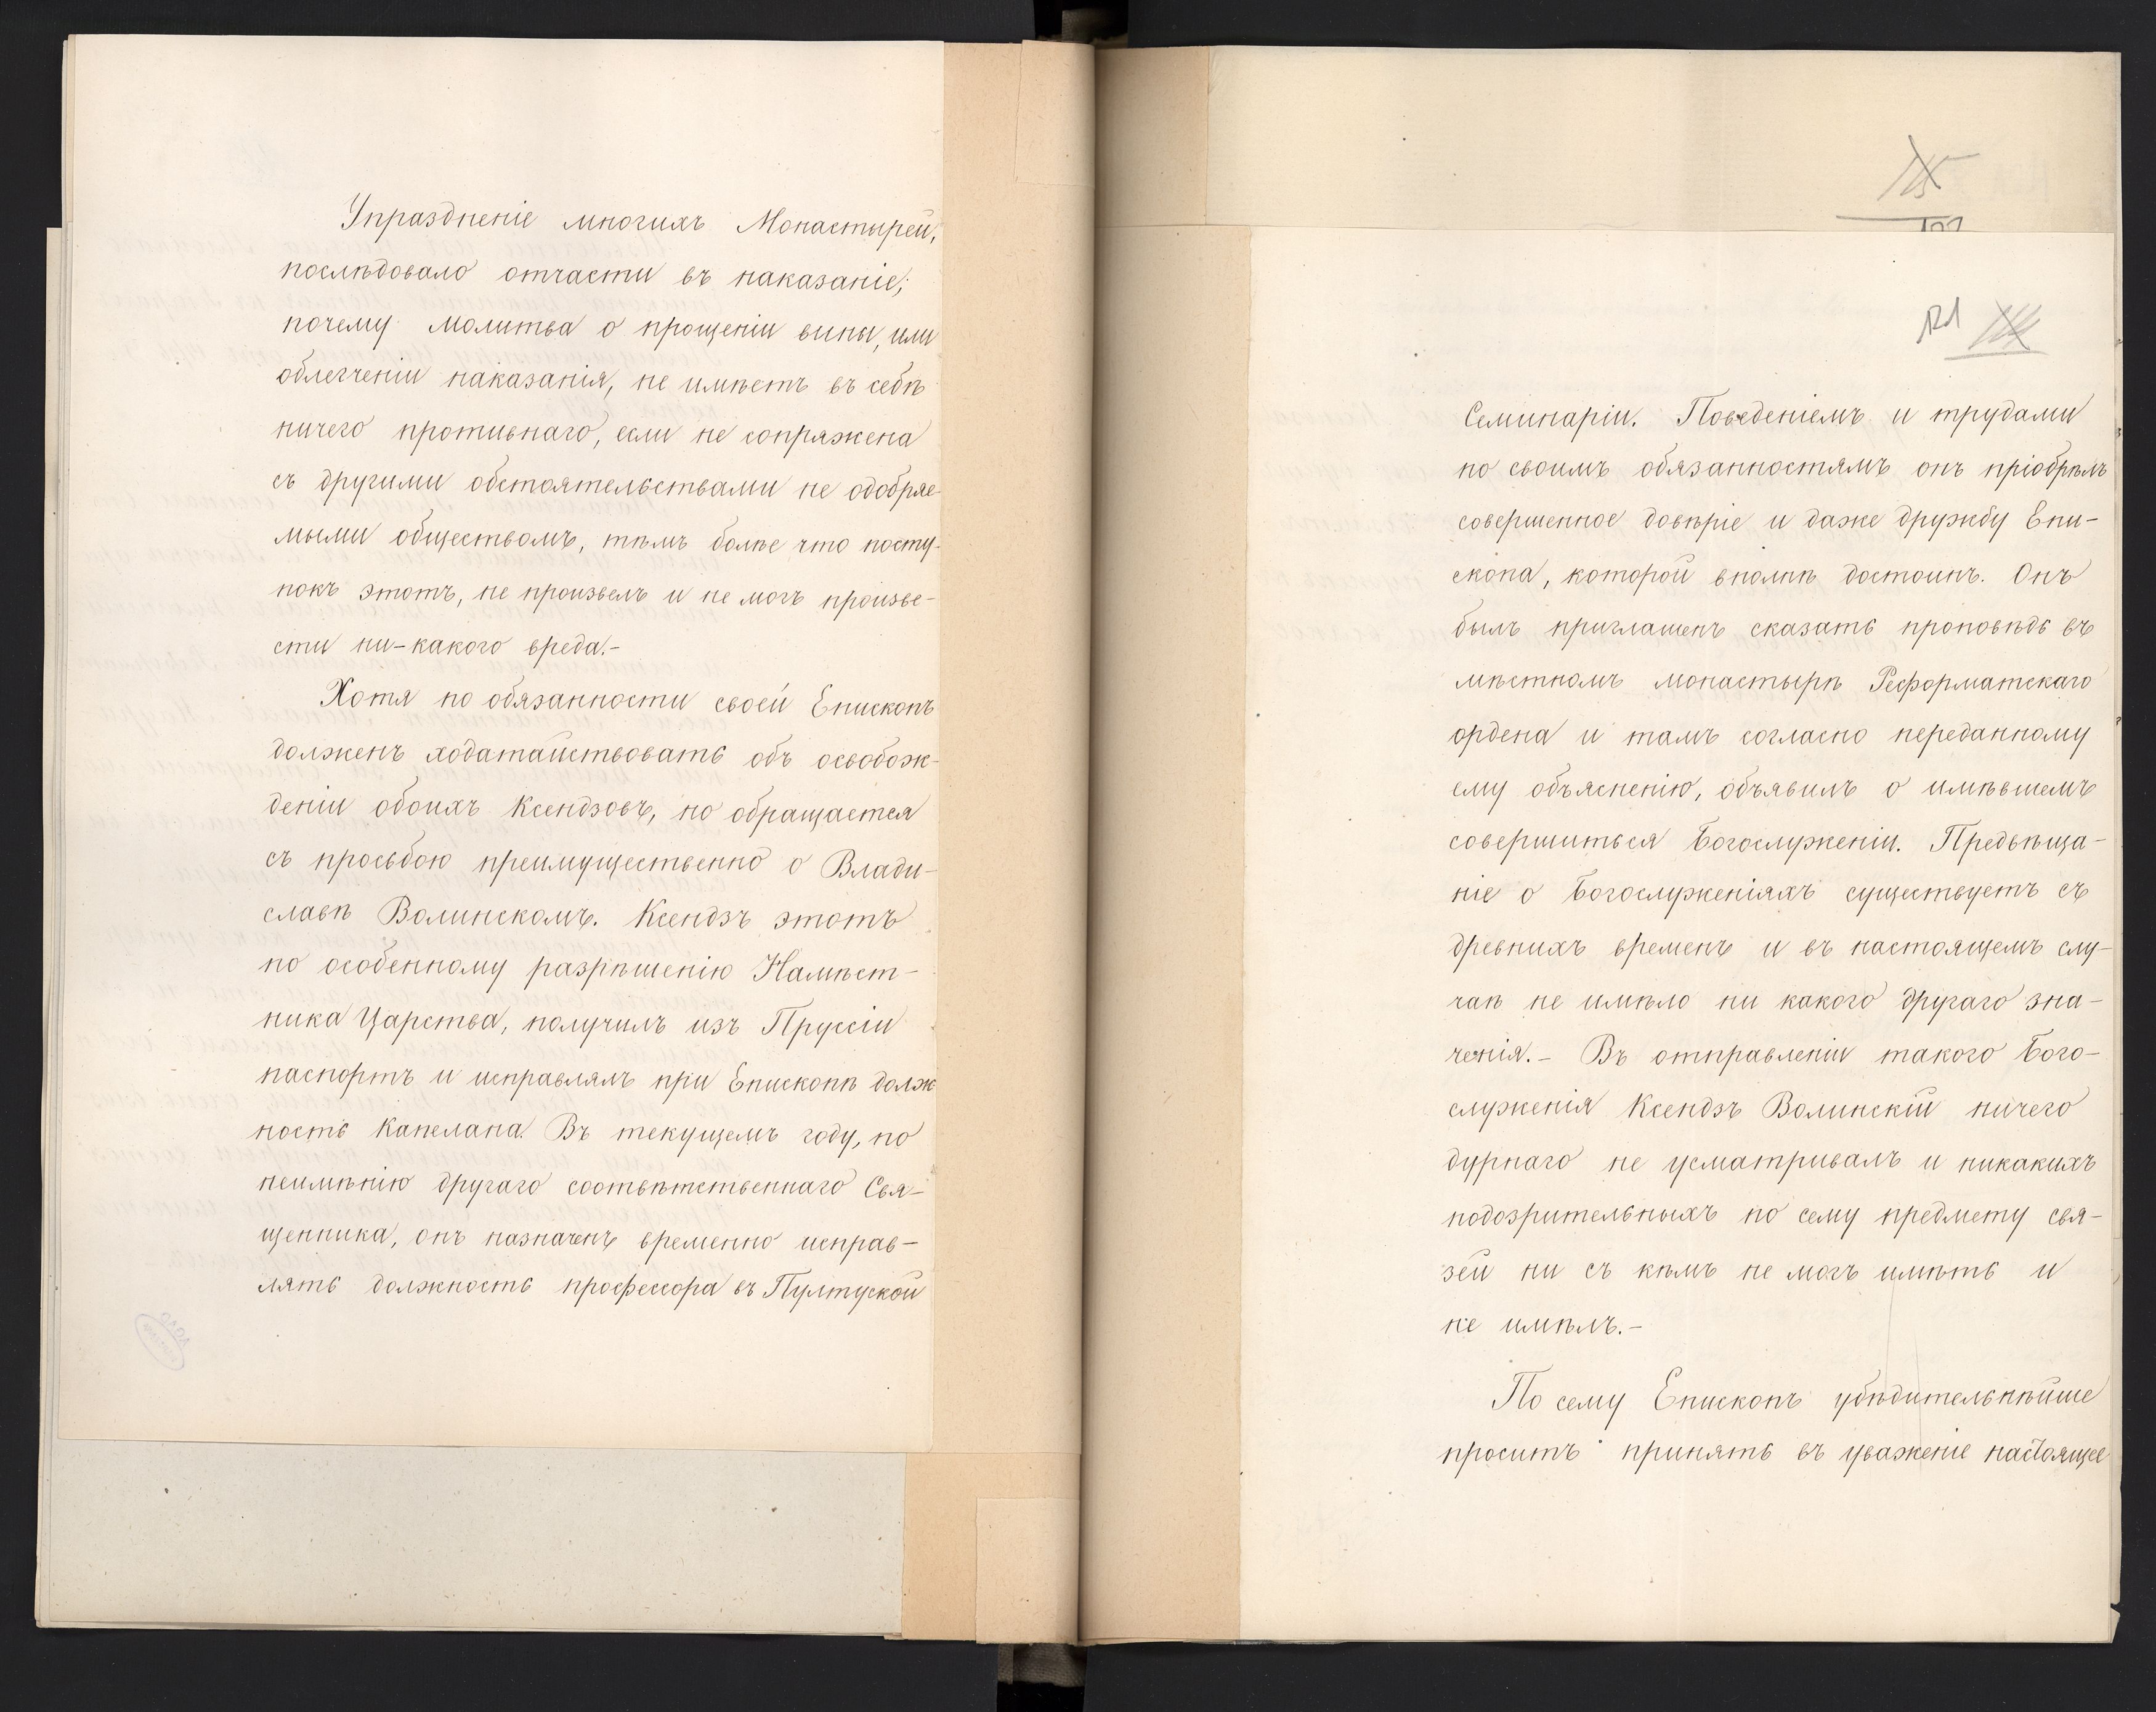 Упраздненіе многихъ Монастырей,
послѣдовало отчасти въ наказаніе;
почему молитва о прощеніи вины, или
облегченіи наказанія, не имѣетъ въ себѣ
ничего противнаго, если не сопряжена
съ другими обстоятельствами не одобряе-
мыми обществомъ, тѣмъ болѣе что посту-
покъ этотъ, не произвелъ и не могъ произве-
сти ни-какого вреда.-
Хотя по обязанности своей Епископъ
долженъ ходатайствовать объ освобож-
деніи обоихъ Ксендзовъ, но обращается
съ просьбою преимущественно о Влади-
славѣ Волинскомъ. Ксендзъ этотъ
по особенному разрѣшенію Намѣст-
ника Царства, получилъ изъ Пруссіи
паспортъ и исправлялъ при Епископѣ долж
ность Капелана. Въ текущемъ году, по
неимѣнію другаго соотвѣтственнаго Свя-
щенника, онъ назначенъ временно исправ-
лять должность профессора въ Пултуской
125
121
Семинаріи. Поведеніемъ и трудами
по своимъ обязанностямъ онъ пріобрѣлъ
совершенное довѣріе и даже дружбу Епи-
скопа, которой вполнѣ достоинъ. Онъ
былъ приглашенъ сказать проповѣдь въ
мѣстномъ монастырѣ Реформатскаго
ордена и тамъ согласно переданному
ему объясненію, объявилъ о имѣвшемъ
совершиться Богослуженіи. Предвѣща-
ніе о Богослуженіяхъ существуетъ съ
древнихъ временъ и въ настоящемъ слу-
чаѣ не имѣло ни какого другаго зна-
ченія.- Въ отправленіи такого Бого-
служенія Ксендзъ Волинскій ничего
дурнаго не усматривалъ и никакихъ
подозрительныхъ по сему предмету свя-
зей ни съ кѣмъ не могъ имѣть и
не имѣлъ.-
По сему Епископъ убѣдительнѣйше
проситъ принять въ уваженіе настоящее